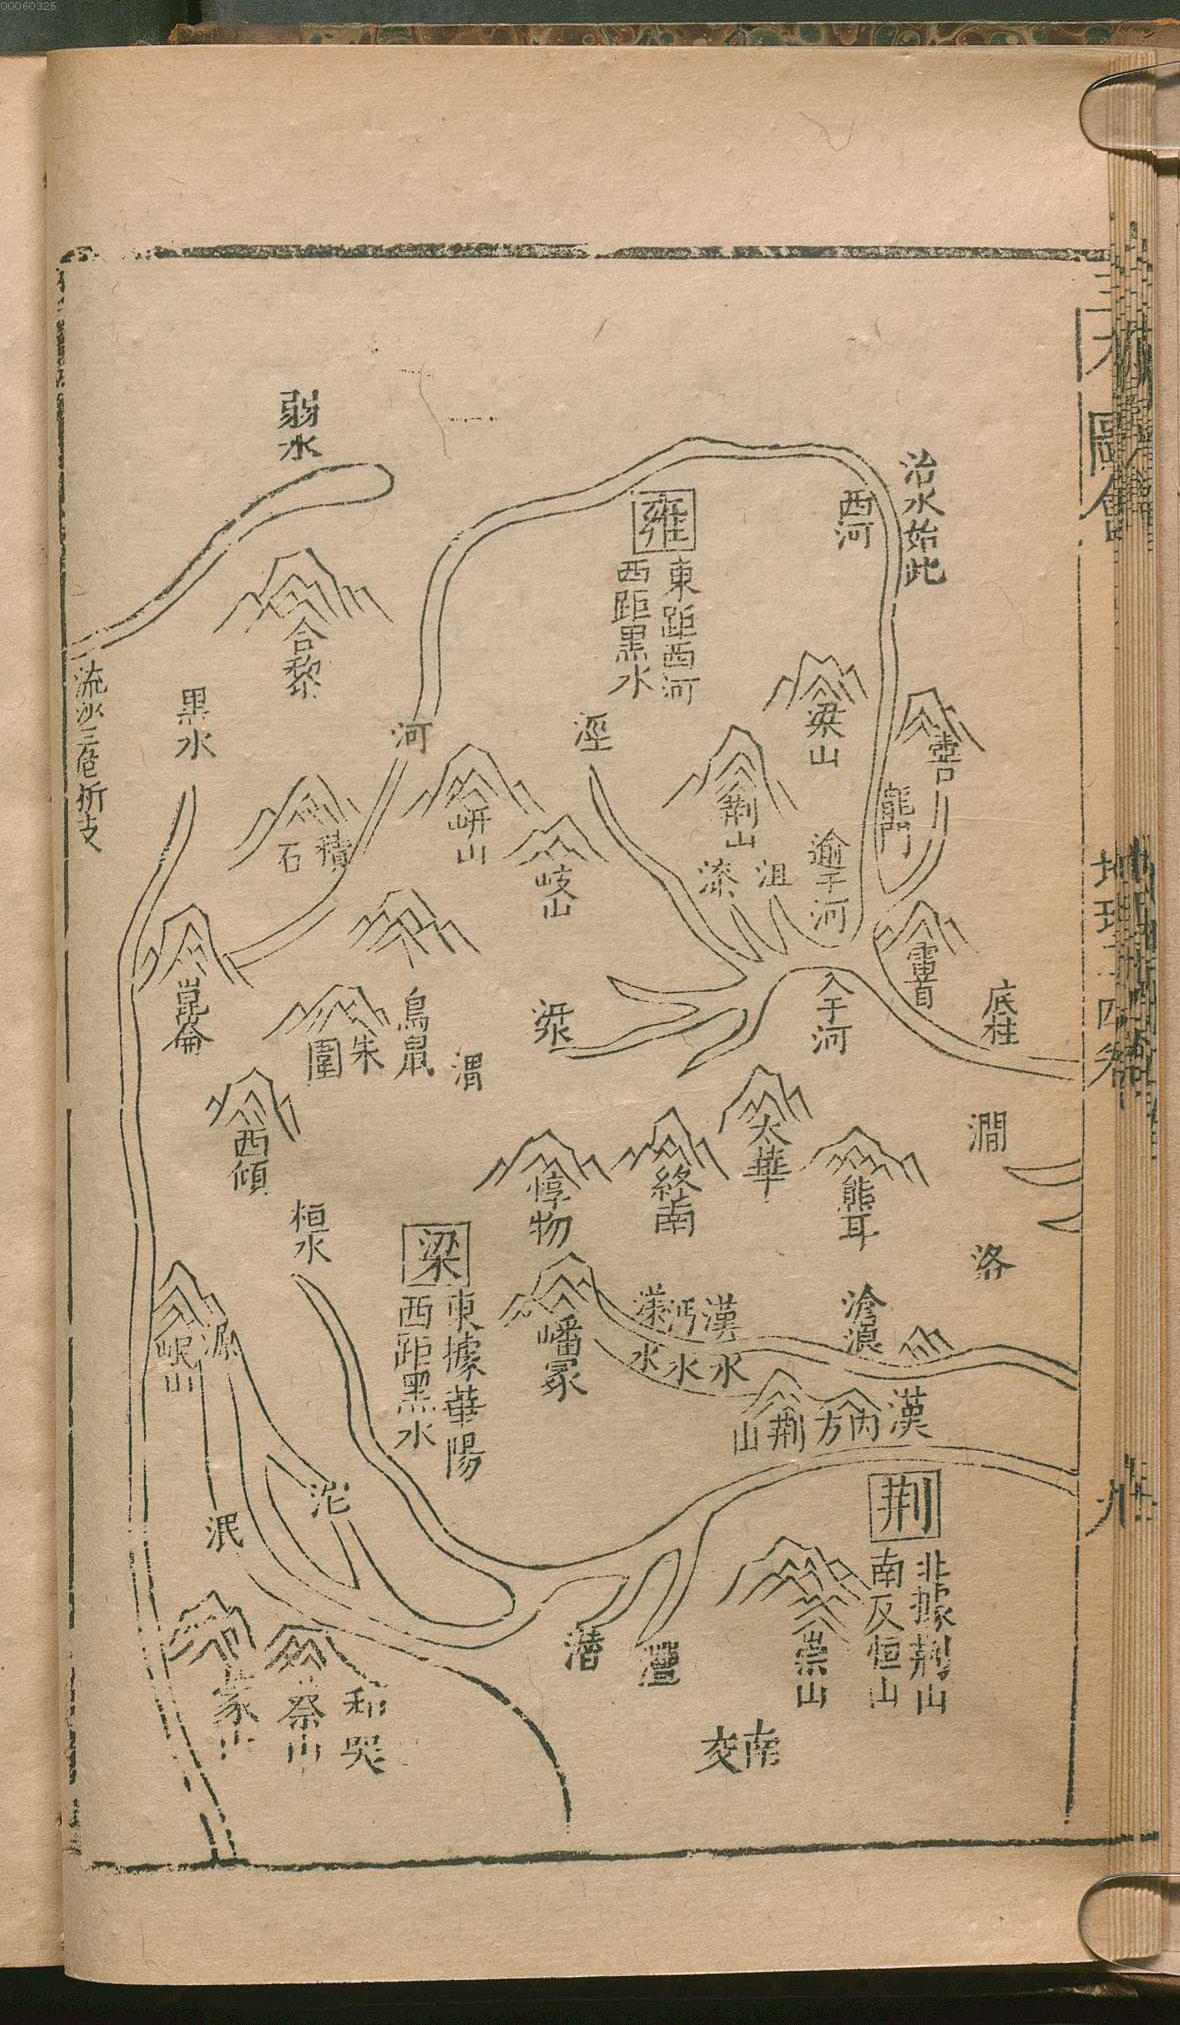 00060325
三才圖會
地理十四卷
九
治水始此
西河
雍
東距西河
西距黑水
弱水
合黎
流沙三危析支
黑水
河
涇
梁山
壺口
龍門
荆山
岍山
岐山
積石
漆
沮
逾于河
雷首
底柱
入于河
崑崙
鳥鼠
朱圉
渭
西傾
太華
終南
惇物
熊耳
澗
洛
桓水
梁
東據華陽
西距黑水
嶓冢
漾水
沔水
漢水
滄浪
岷山
源
漢
內方
荆山
沱
荆
北據荆山
南及恒山
崇山
潛
灃
蒙山
蔡山
和夷
南交